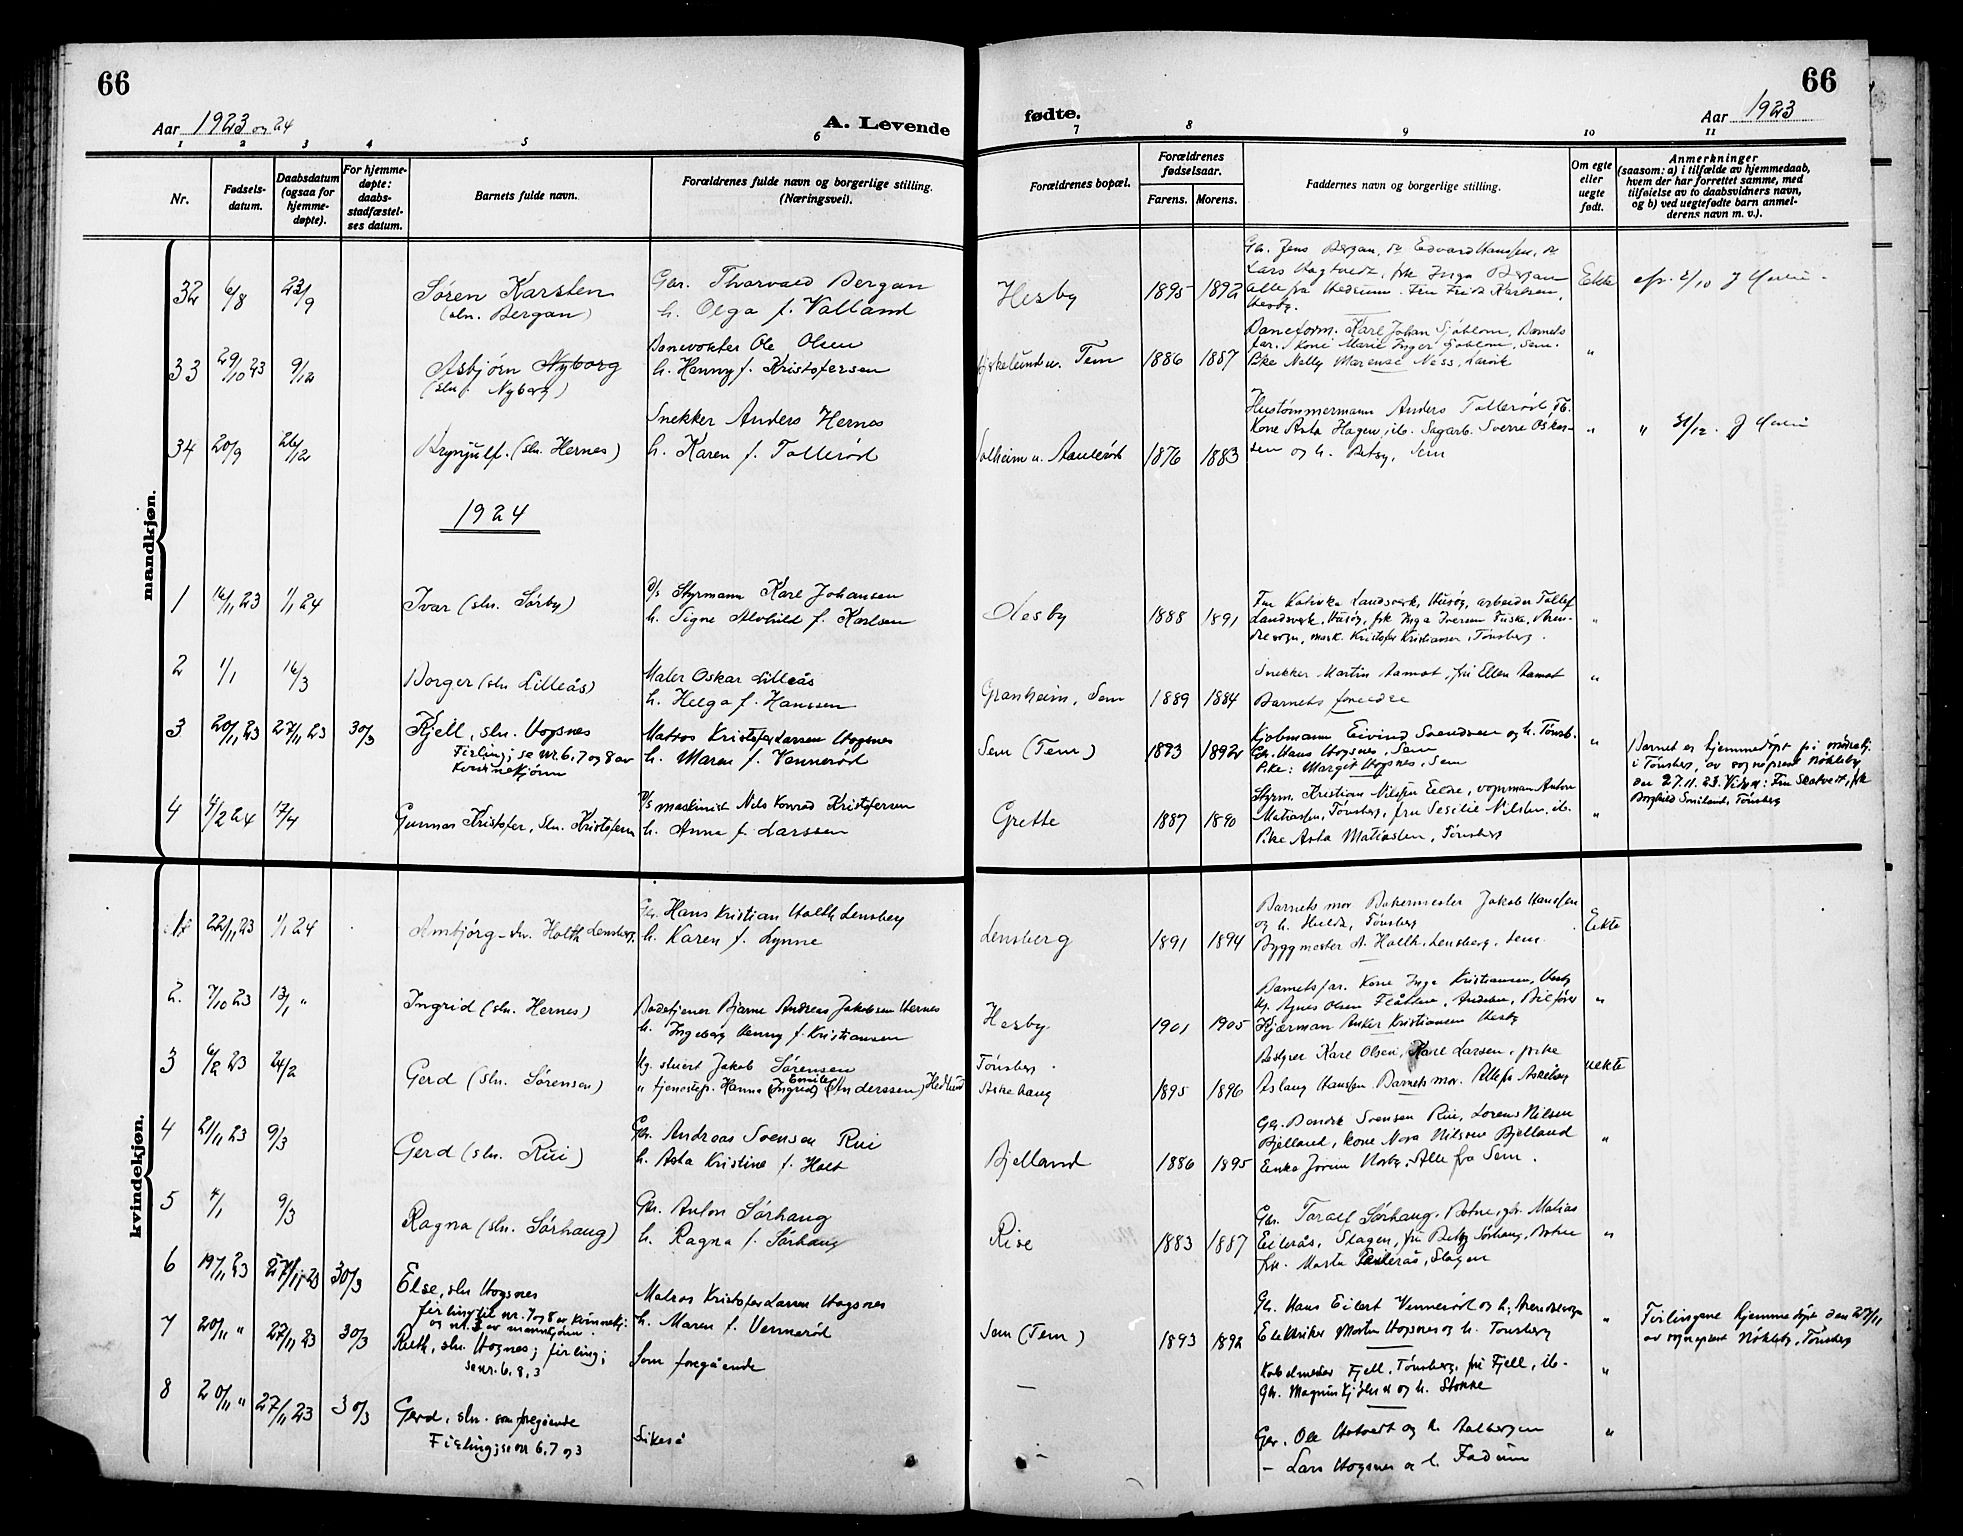 66
66
Aar 1923 og 24
A. Levende
fødte.
Aar 1923
1 2 3 4 5 6
7 8 9 10 11
Nr.
Fødsels-
datum.
Daabsdatum
(ogsaa for
hjemme-
døpte).
For hjemme-
døpte:
daabs-
stadfæstel-
ses datum.
Barnets fulde navn.
Forældrenes fulde navn og borgerlige stilling.
(Næringsvei).
Forældrenes bopæl.
Forældrenes
fødselsaar.
Farens. Morens.
Faddernes navn og borgerlige stilling.
Om egte
eller
uegte
født.
Anmerkninger
(saasom: a) i tilfælde av hjemmedaab,
hvem der har forrettet samme, med
tilføielse av to daabsvidners navn,
og b) ved uegtefødte barn anmel-
derens navn m. v.).
mandkjøn.
32 6/8 23/9 Søren Karsten
(sln. Bergan)
Gbr. Thorvald Bergan
h. Olga f. Valland
Hesby 1895 1892
Gbr. Jens Bergan, Edvard Hanssen,
Lars Hagtvedt, frk Inga Bergan
alle fra Hedrum. Fru Frida Karlsen,
Hesby.
Ekte
33 29/10 23 9/12 Asbjørn Nyborg
(sln. Nyborg)
Banevokter Ole Olsen
h. Hanny f. Kristofersen
Tem 1886 1887
Baneform. Karl Johan Sjøblom, Barnets
far. Kone Marie Inger Sjøblom, Sem.
Pike Nelly Marense Ness, Larvik
"
34 20/9 26/12 Brynjulf. (sln. Hernes)
Snekker Anders Hernes
h. Karen f. Tollerød
Solheim u. 1876 1883
Hustømmermann Anders Tollerød, Tb.
Kone Asta Hagen, ib. Sagarb. Sverre Oskar-
sen og h. Betsy, Sem
" " 31/12.
1924
1 16/11 23 1/1 24 Ivar (sln. Sørby)
D/s Styrmann Karl Johansen
h. Signe Alvhild f. Karlsen
Hesby 1888 1891
Fru Landsverk, Husøy, arbeider Tollef
Landsverk, Husøy, frk Inga Iversen
mask. Kristofer Kristiansen, Tønsberg.
"
2 1/1 16/3 Borger (sln Lilleås)
Maler Oskar Lilleås
h. Helga f. Hanssen
Granheim, Sem 1889 1884
Snekker Martin Aamot, fru Ellen Aamot
Barnets foreldre
"
3 20/11 23 27/11 23 30/3 Kjell, sln. Hogsnes
Firling; se nr. 6, 7 og 8 av
kvinnekjønn
Matros Kristofer Larsen Hogsnes
h. Maren f. Vennerød
Sem (Tem) 1893 1892
Kjøbmann Eivind Svendsen og h. Tønsb.
Gbr. Hans Hogsnes, Sem
Pike: Margit Hogsnes, Sem
"
Barnet er hjemmedøpt på
i Tønsberg, av sogneprest Nøkleby
den 27.11.23. Vidner: Fru Skatvedt, frk
Borghild Smiland, Tønsberg
4 4/2 24 17/4 Gunnar Kristofer, sln. Kristofersen
D/s maskinist Nils Konrad Kristofersen
h. Anna f. Larssen
Grette 1887 1890
Styrm. Kristian Nilsen vognman Anton
Matiassen, Tønsberg, fru Sesilie Nilsen, ib.
Pike Asta Matiassen, Tønsberg
"
kvindekjøn.
22/11 23 1/1 24 Arnbjørg sln. Holth Lensberg
Gbr. Hans Kristian Holth Lensberg
h. Karen f. Lynne
Lensberg 1891 1894
Barnets mor Bakermester Jakob Hanssen
og h. Hulda, Tønsberg
Byggmester A. Holth, Lensberg, Sem.
Eekte
2. 7/10 23 13/1 " Ingrid (sln. Hernes)
Badetjener Bjarne Andreas Jakobsen Hernes
h. Ingeborg Henny f. Kristiansen
Hesby. 1901 1905
Barnets far. Kone Inga Kristiansen, Hesby
Agnes Olsen Flåtten, Andebu, Bilfører
Hjærman Anker Kristiansen Hesby
"
3 6/2 23 24/2 Gerd (sln. Sørensen)
Ug. stuert Jakob Sørensen
" tjenestep. Hanna (Ingrid) Emilie (Anderssen) Hedlund
Tønsberg.
Askehaug 1895 1896
Bestyrer Karl Olsen, Karl Larsen, frke
Aslaug Hanssen. Barnets mor. Alle fra Askehaug
uekte
4 21/11 23 9/3 Gerd (sln. Rui)
Gbr. Andreas Svensen Rui
h. Asta Kristine f. Holt
Bjelland 1886 1895
Gbr. Svensen Rui, Lorens Nilsen
Bjelland, kone Nora Nilsen Bjelland
Enke Alle fra Sem.
"
5 4/1 9/3 Ragna (sln. Sørhaug)
Gbr. Anton Sørhaug
h. Ragna f. Sørhaug
Rise 1883 1887
Gbr. Taralf Sørhaug, Botne, gbr. Matias
Eilerås, Slagen, fru Betzy Sørhaug, Botne
frk. Marta Eilerås, Slagen
"
6 19/11 23 27/11 23 30/3 Else, sln Hogsnes
firling til nr. 7 og 8 av kvinnekj.
og nr. 3 av mannkjønn.
Matros Kristofer Larsen Hogsnes
h. Maren f. Vennerød
Sem (Tem) 1893 1892
Gbr. Hans Eilert Vennerød og h;
Elektriker Morten Hogsnes og h. Tønsberg
"
Firlingene hjemmedøpt den 27/11
av sogneprest Nøkleby, Tønsberg
7 20/11 " 27/11 23 30/3 Ruth, sln. Hogsnes; firling;
se nr. 6, 8, 3
Som foregående
–
Fjell, Tønsberg, fru Fjell, ib.
Gbr. Magnus og h. Stokke
"
8 20/11 " 27/11 23 30/3 Gerd, sln. som foregående
Firling; se nr 6, 7 og 3
Likeså
–
Gbr. Ole og h.
– Lars Hogsnes og h. Fadum
"